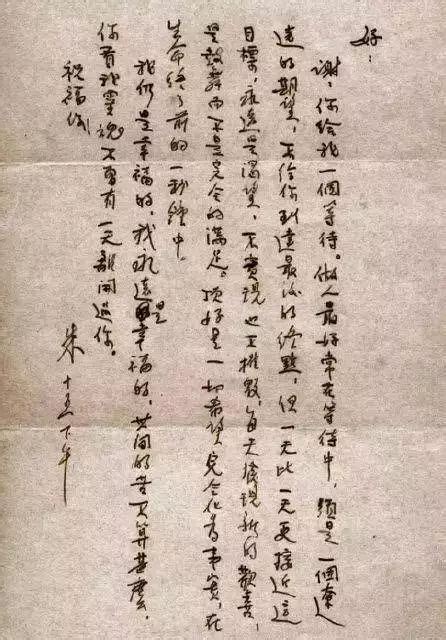 好：
謝謝你給我一個等待。做人最好常在等待中，須是一個遼
遠的期望，不給你到達最後的終點，但一天比一天更接近這
目標，永遠是渴望，不實現也不摧毀，每天發現新的歡喜，
是鼓舞而不是完全的滿足。頂好是一切希望完全化為事實，在
生命終了前的一秒鐘中。
我們是幸福的，我永遠是幸福的，世間的苦不算甚麼，
你看我靈魂不曾有一天離開過你。
祝福你
朱 十五下午